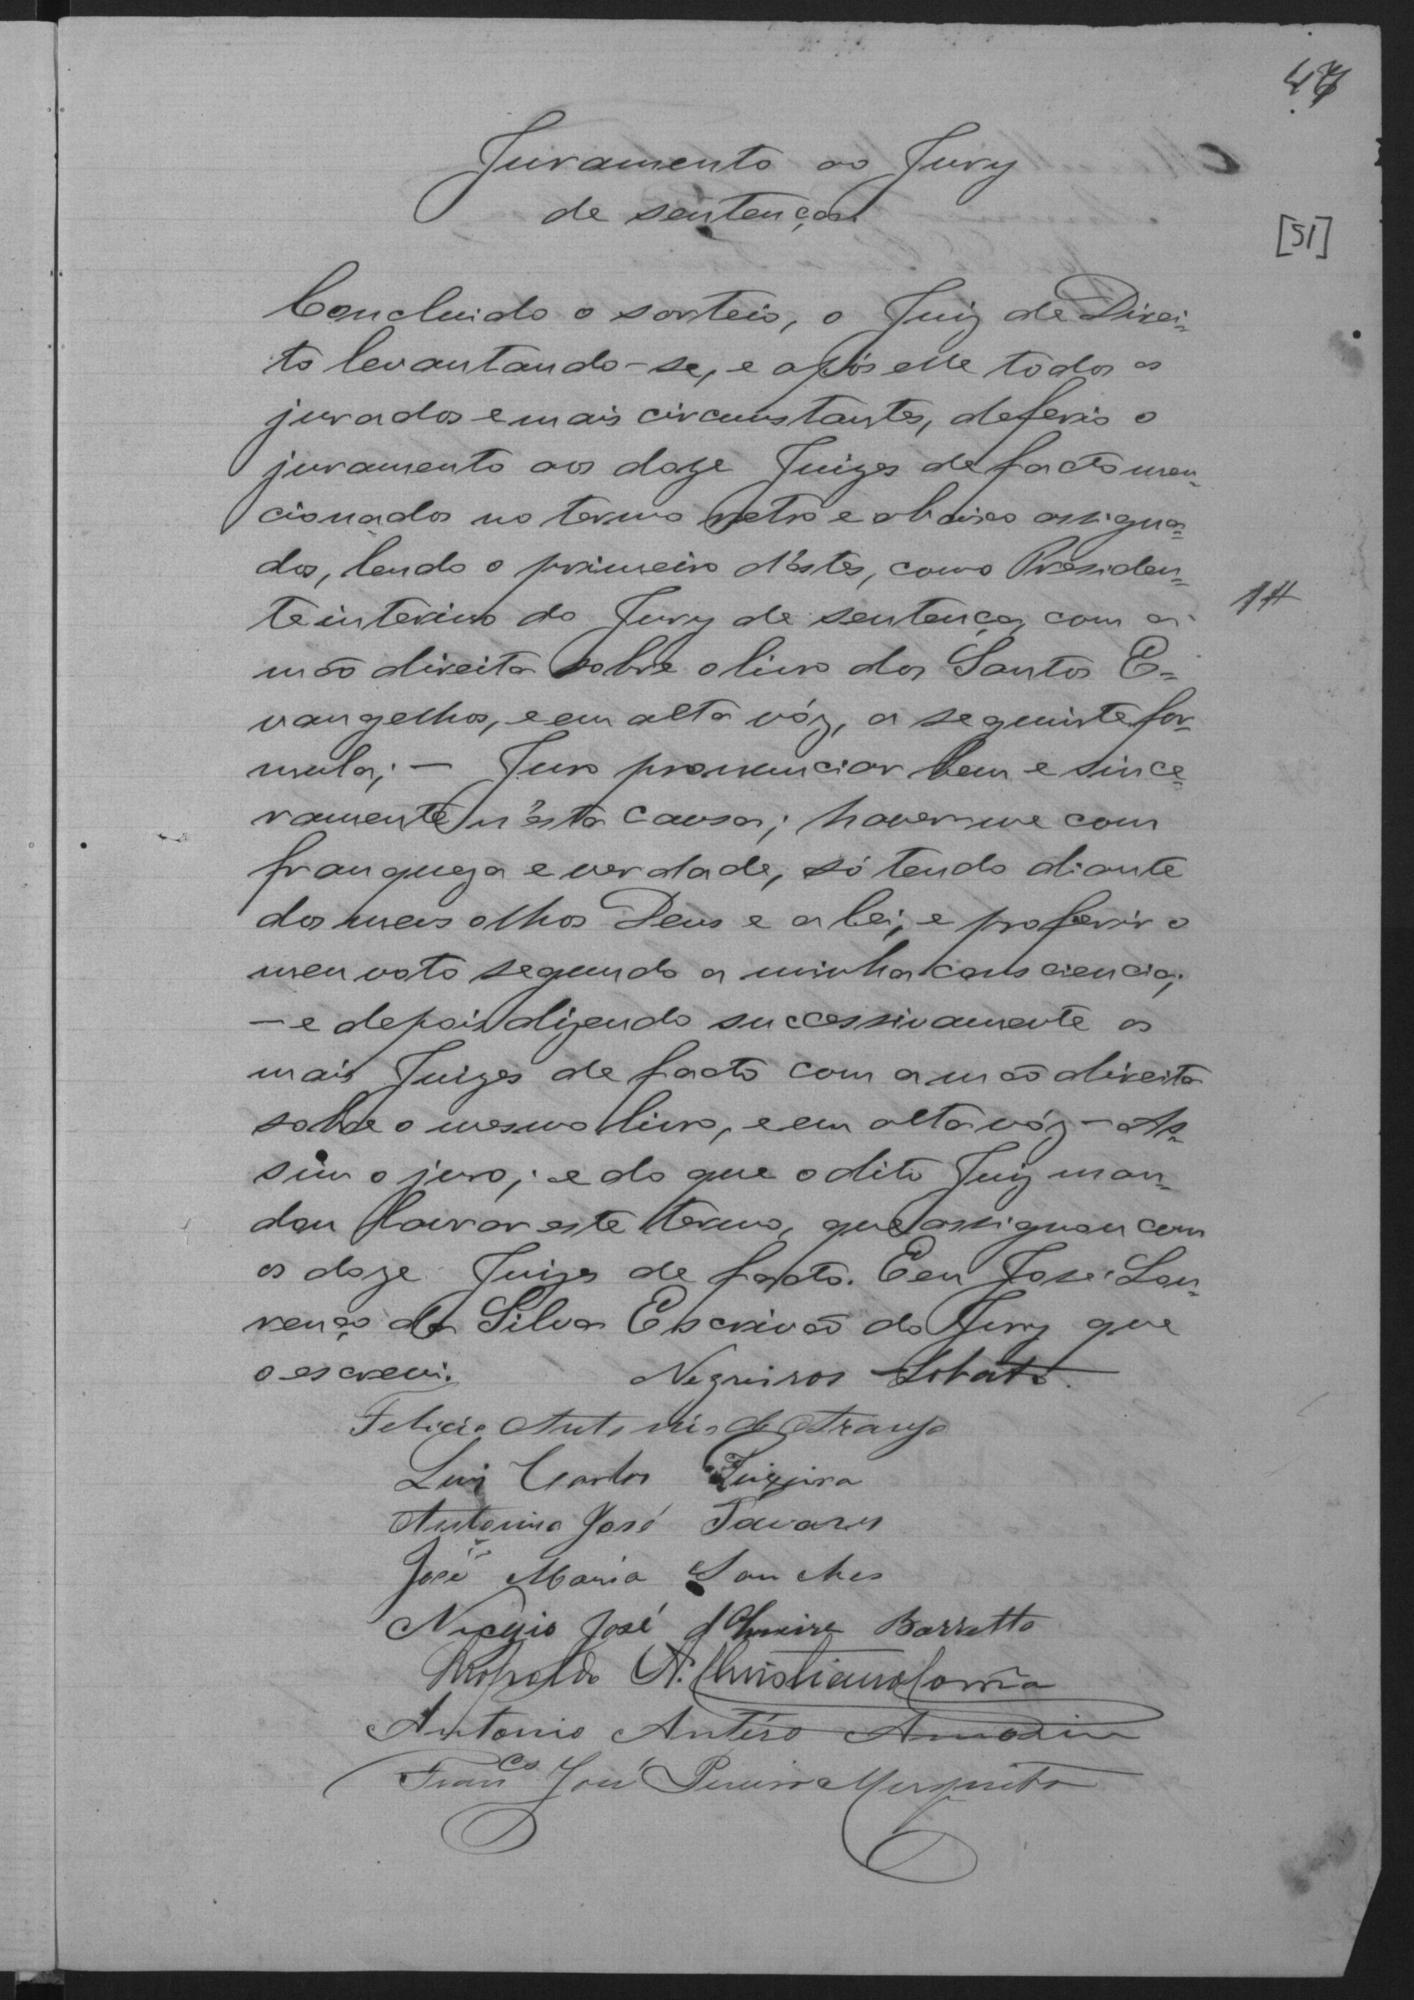 47
Juramento ao Jury
de sentença
[51]
Concluido o sorteio, o Juiz de Direi-
to levantando-se, e após elle todos os
jurados e mais circunstantes, deferio o
juramento aos doze Juizes de facto men-
cionados no termo retro e abaixo assigna-
dos, lendo o primeiro d'estes, como Presiden-
te interino do Jury de sentença, com a
mão direita sobre o livro dos Santos E-
vangelhos, e em alta vóz, a seguinte for-
mula; — Juro pronunciar bem e since-
ramente n'esta causa; haver-me com
franqueza e verdade, só tendo diante
dos meus olhos Deus e a lei; e proferir o
meu voto segundo a minha consciencia;
— e depois dizendo successivamente os
mais Juizes de facto com a mão direita
sobre o mesmo livro, e em alta vóz — As-
sim o juro; e do que o dito Juiz man-
dou lavrar este termo, que assignou com
os doze Juizes de facto. E eu José Lou-
renço da Silva Escrivão do Jury que
o escrevi.
Negreiros Lobato
Felicio Antonio de Araujo
Luiz Carlos Teixeira
Antonino José Tavares
José Maria Sanches
José Barretto
Leopoldo A. Christiano Corrêa
Antonio Antéro Amorim
Fran.co José Pereira Mesquita